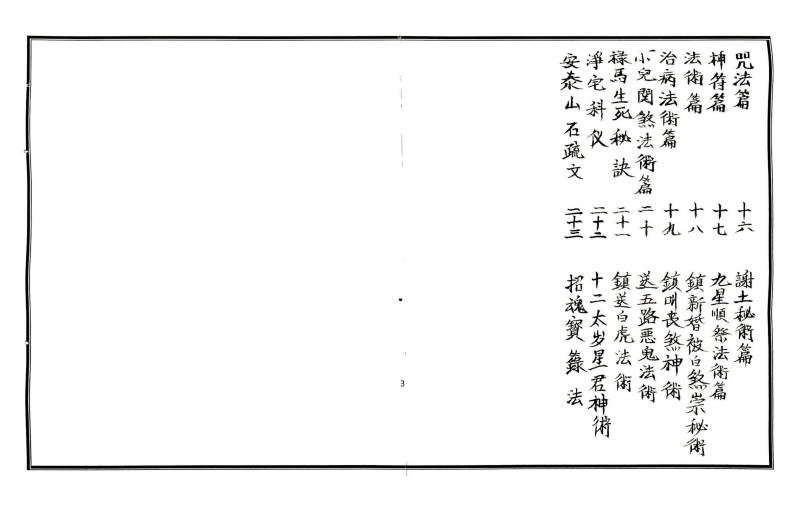 咒法篇 十六 謝土秘術篇
神符篇 十七 九星順祭法術篇
法術篇 十八 鎮新婚被白煞崇秘術
治病法術篇 十九 鎮叫喪煞神術
小兒関煞法術篇 二十 送五路惡鬼法術
祿馬生死秘訣 二十一 鎮送白虎法術
淨宅科仪 二十二 十二太岁星君神術
安泰山石疏文 二十三 招魂寶籙法
3